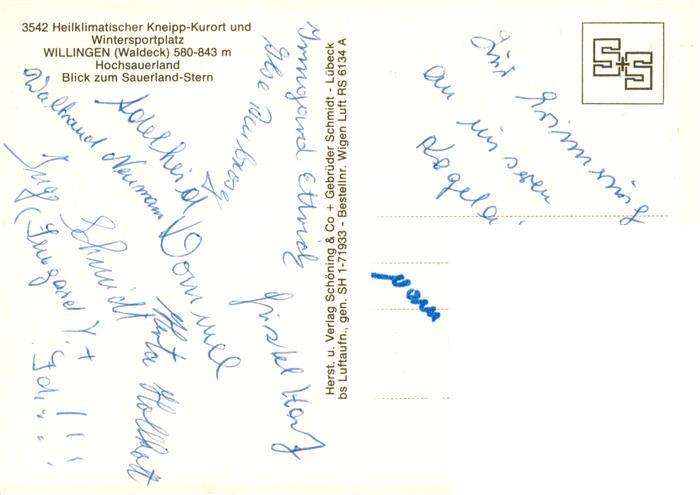 3542 Heilklimatischer Kneipp-Kurort und
Wintersportplatz
WILLINGEN (Waldeck) 580-843 m
Hochsauerland
Blick zum Sauerland-Stern
Waltraud Neumann
Adelheid Dommel
Inge Schmidt
(Irmgard)
Herta
Irmgard
Else
Christel
Herst. u. Verlag Schöning & Co + Gebrüder Schmidt - Lübeck
bs Luftaufn., gen. SH 1-71933 - Bestellnr. Wigen Luft RS 6134 A
S+S
Zur Erinnerung
an unseren